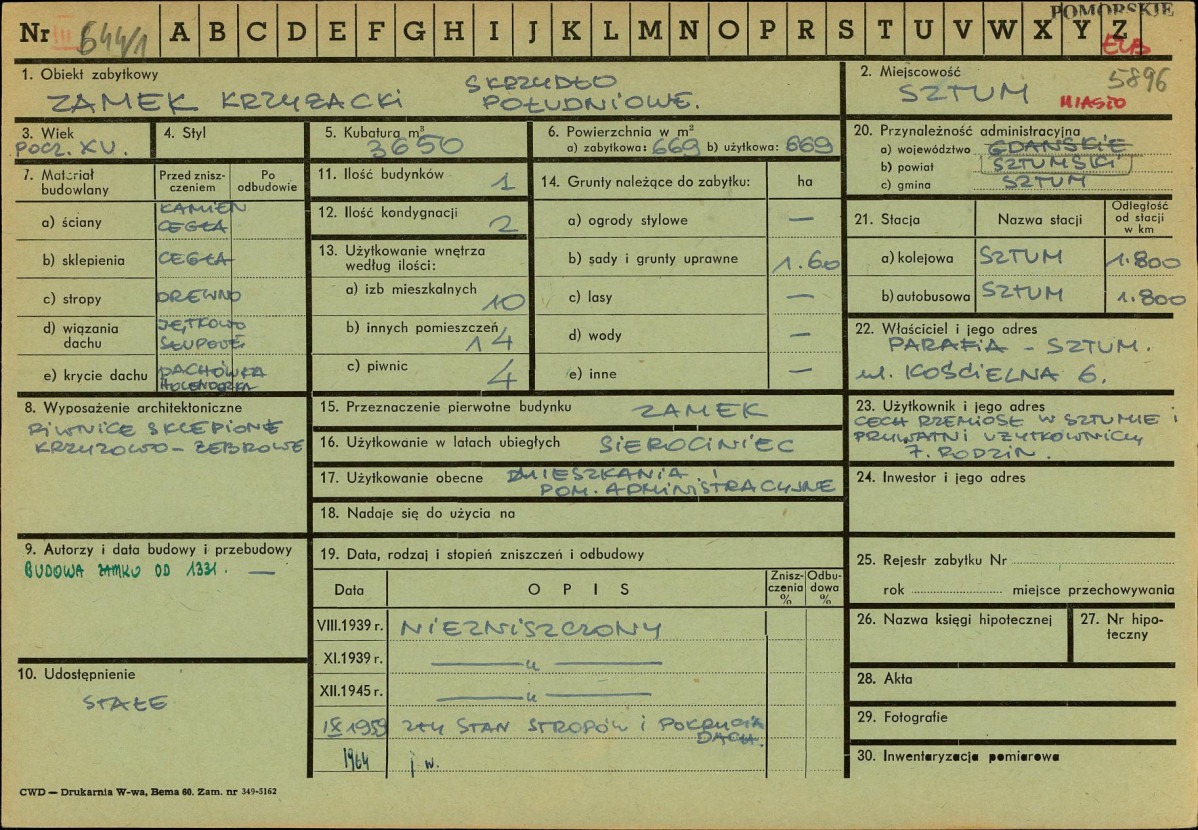 POMORSKIE
Nr 644/1 A B C D E F G H I J K L M N O P R S T U V W X Y Z
ELB
1. Obiekt zabytkowy
ZAMEK KRZYŻACKI SKRZYDŁO
POŁUDNIOWE.
2. Miejscowość 5896
SZTUM MIASTO
3. Wiek
POCZ. XV.
4. Styl
5. Kubatura m³
3650
6. Powierzchnia w m²
a) zabytkowa: 669 b) użytkowa: 669
20. Przynależność administracyjna
a) województwo GDAŃSKIE
b) powiat SZTUMSKI
c) gmina SZTUM
7. Materiał
budowlany
Przed znisz-
czeniem
Po
odbudowie
a) ściany KAMIEŃ
CEGŁA
b) sklepienia CEGŁA
c) stropy DREWNO
d) wiązania
dachu
JĘTKOWO
SŁUPOWE
e) krycie dachu DACHÓWKA
HOLENDERKA
11. Ilość budynków 1
12. Ilość kondygnacji 2
13. Użytkowanie wnętrza
według ilości:
a) izb mieszkalnych 10
b) innych pomieszczeń 14
c) piwnic 4
14. Grunty należące do zabytku: ha
a) ogrody stylowe —
b) sady i grunty uprawne 1.60
c) lasy —
d) wody —
e) inne —
21. Stacja Nazwa stacji Odległość
od stacji
w km
a) kolejowa SZTUM 1.800
b) autobusowa SZTUM 1.800
22. Właściciel i jego adres
PARAFIA - SZTUM.
ul. KOŚCIELNA 6.
8. Wyposażenie architektoniczne
PIWNICE SKLEPIONE
KRZYŻOWO - ŻEBROWE
15. Przeznaczenie pierwotne budynku ZAMEK
16. Użytkowanie w latach ubiegłych SIEROCINIEC
17. Użytkowanie obecne MIESZKANIA I
POM. ADMINISTRACYJNE
18. Nadaje się do użycia na
23. Użytkownik i jego adres
CECH RZEMIOSŁ W SZTUMIE i
PRYWATNI UŻYTKOWNICY
7. RODZIN.
24. Inwestor i jego adres
9. Autorzy i data budowy i przebudowy
BUDOWA ZAMKU OD 1331. —
10. Udostępnienie
STAŁE
19. Data, rodzaj i stopień zniszczeń i odbudowy
Data OPIS Znisz-
czenia
%
Odbu-
dowa
%
VIII.1939 r. NIEZNISZCZONY
XI.1939 r. — " —
XII.1945 r. — " —
IX 1959 ZŁY STAN STROPÓW i POKRYCIA
DACH.
1964 j w.
25. Rejestr zabytku Nr
rok miejsce przechowywania
26. Nazwa księgi hipotecznej
27. Nr hipo-
teczny
28. Akta
29. Fotografie
30. Inwentaryzacja pomiarowa
CWD — Drukarnia W-wa, Bema 60. Zam. nr 349-5162